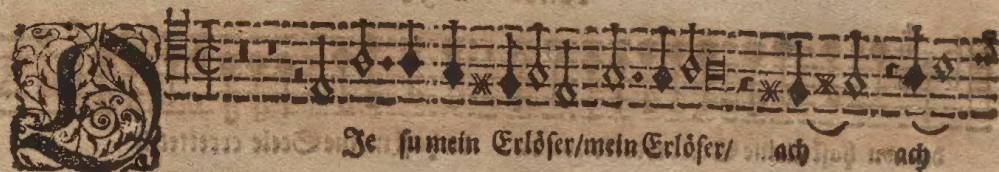 O Je su mein Erlöser/mein Erlöser/ ach ach